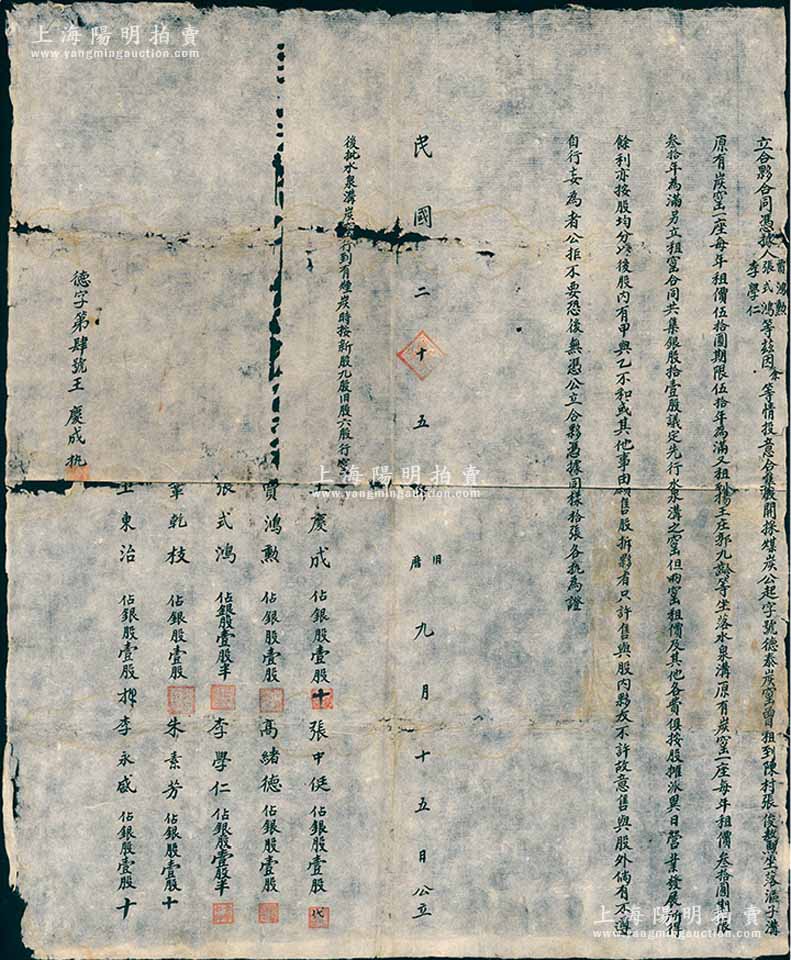 上海陽明拍賣
www.yangmingauction.com
上海陽明拍賣
www.yangmingauction.com
立合夥合同憑據人賈鴻勲張式鴻李學仁等兹因余等情投意合集機開採煤炭公起字號德泰炭窑曾租到陳村張俊坐落溝
原有炭窑一座每年租價伍拾圓期限伍拾年為滿又租到楊王庄郭九齡等坐落水泉溝原有炭窑一座每年租價叁拾圓期限
叁拾年為滿另立租窑合同共集銀股拾壹股議定先行水泉溝之窑但兩窑租價及其他各費俱按股攤派異日營業發展所得
餘利亦按股均分以後股內有甲與乙不和或其他事由願售股拆夥者只許售與股內夥友不許故意售與股外倘有不遵
自行妄為者公拒不要恐後無憑公立合夥憑據同樣拾張各執為證
民國二十五年舊曆九月十五日公立
後批水泉溝炭窑行到有煙炭時按新股九股旧股六股行窑
王慶成佔銀股壹股十張中佔銀股壹股代
賈鴻勲佔銀股壹股高緒德佔銀股壹股
張式鴻佔銀股壹股半李學仁佔銀股壹股半
乾枝佔銀股壹股朱素芳佔銀股壹股十
王東治佔銀股壹股押李永盛佔銀股壹股十
德字第肆號王慶成执
上海陽明拍賣
www.yangmingauction.com